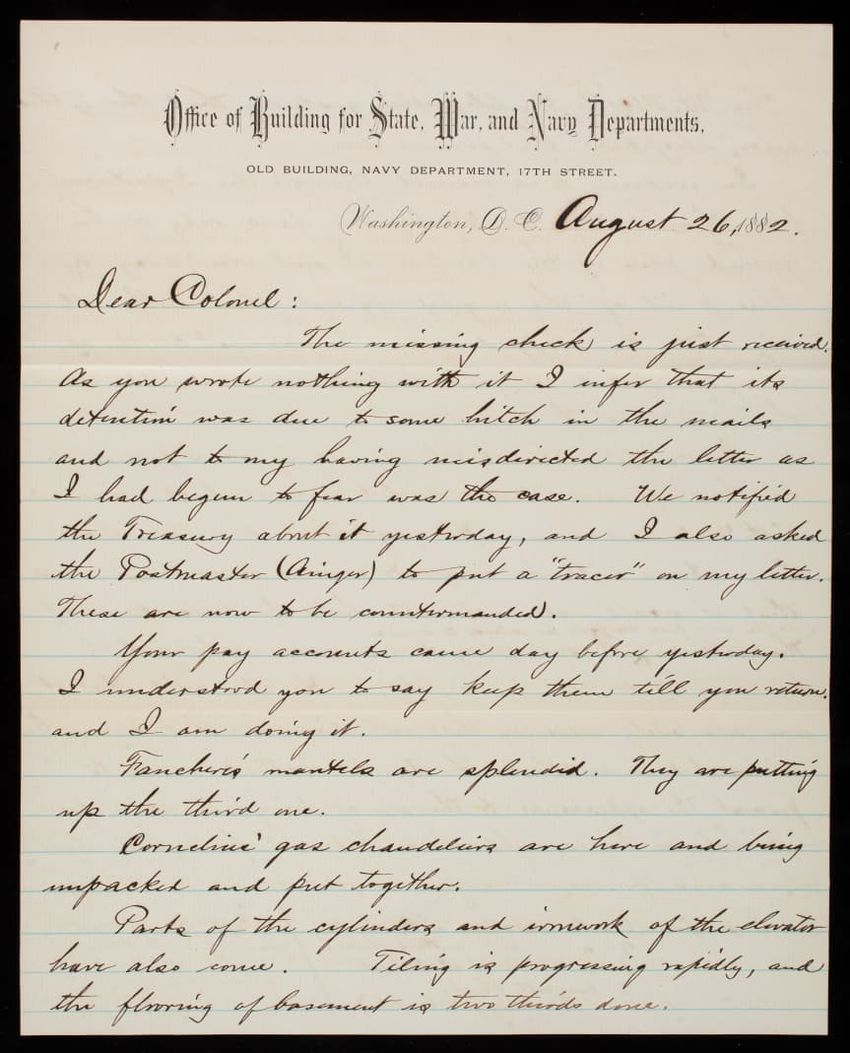 Office of Building for State, War, and Navy Departments,
OLD BUILDING, NAVY DEPARTMENT, 17TH STREET.
Washington, D. C. August 26, 1882.
Dear Colonel:
The missing check is just received.
As you wrote nothing with it I infer that its
detention was due to some hitch in the mails
and not to my having misdirected the letter as
I had begun to fear was the case. We notified
the Treasury about it yesterday, and I also asked
the Postmaster (Ainger) to put a "tracer" on my letter.
These are now to be countermanded.
Your pay accounts came day before yesterday.
I understood you to say keep them till you return.
and I am doing it.
Fancher's mantels are splendid. They are putting
up the third one.
Cornelius' gas chandeliers are here and being
unpacked and put together.
Parts of the cylinders and ironwork of the elevator
have also come. Tiling is progressing rapidly, and
the flooring of basement is two thirds done.